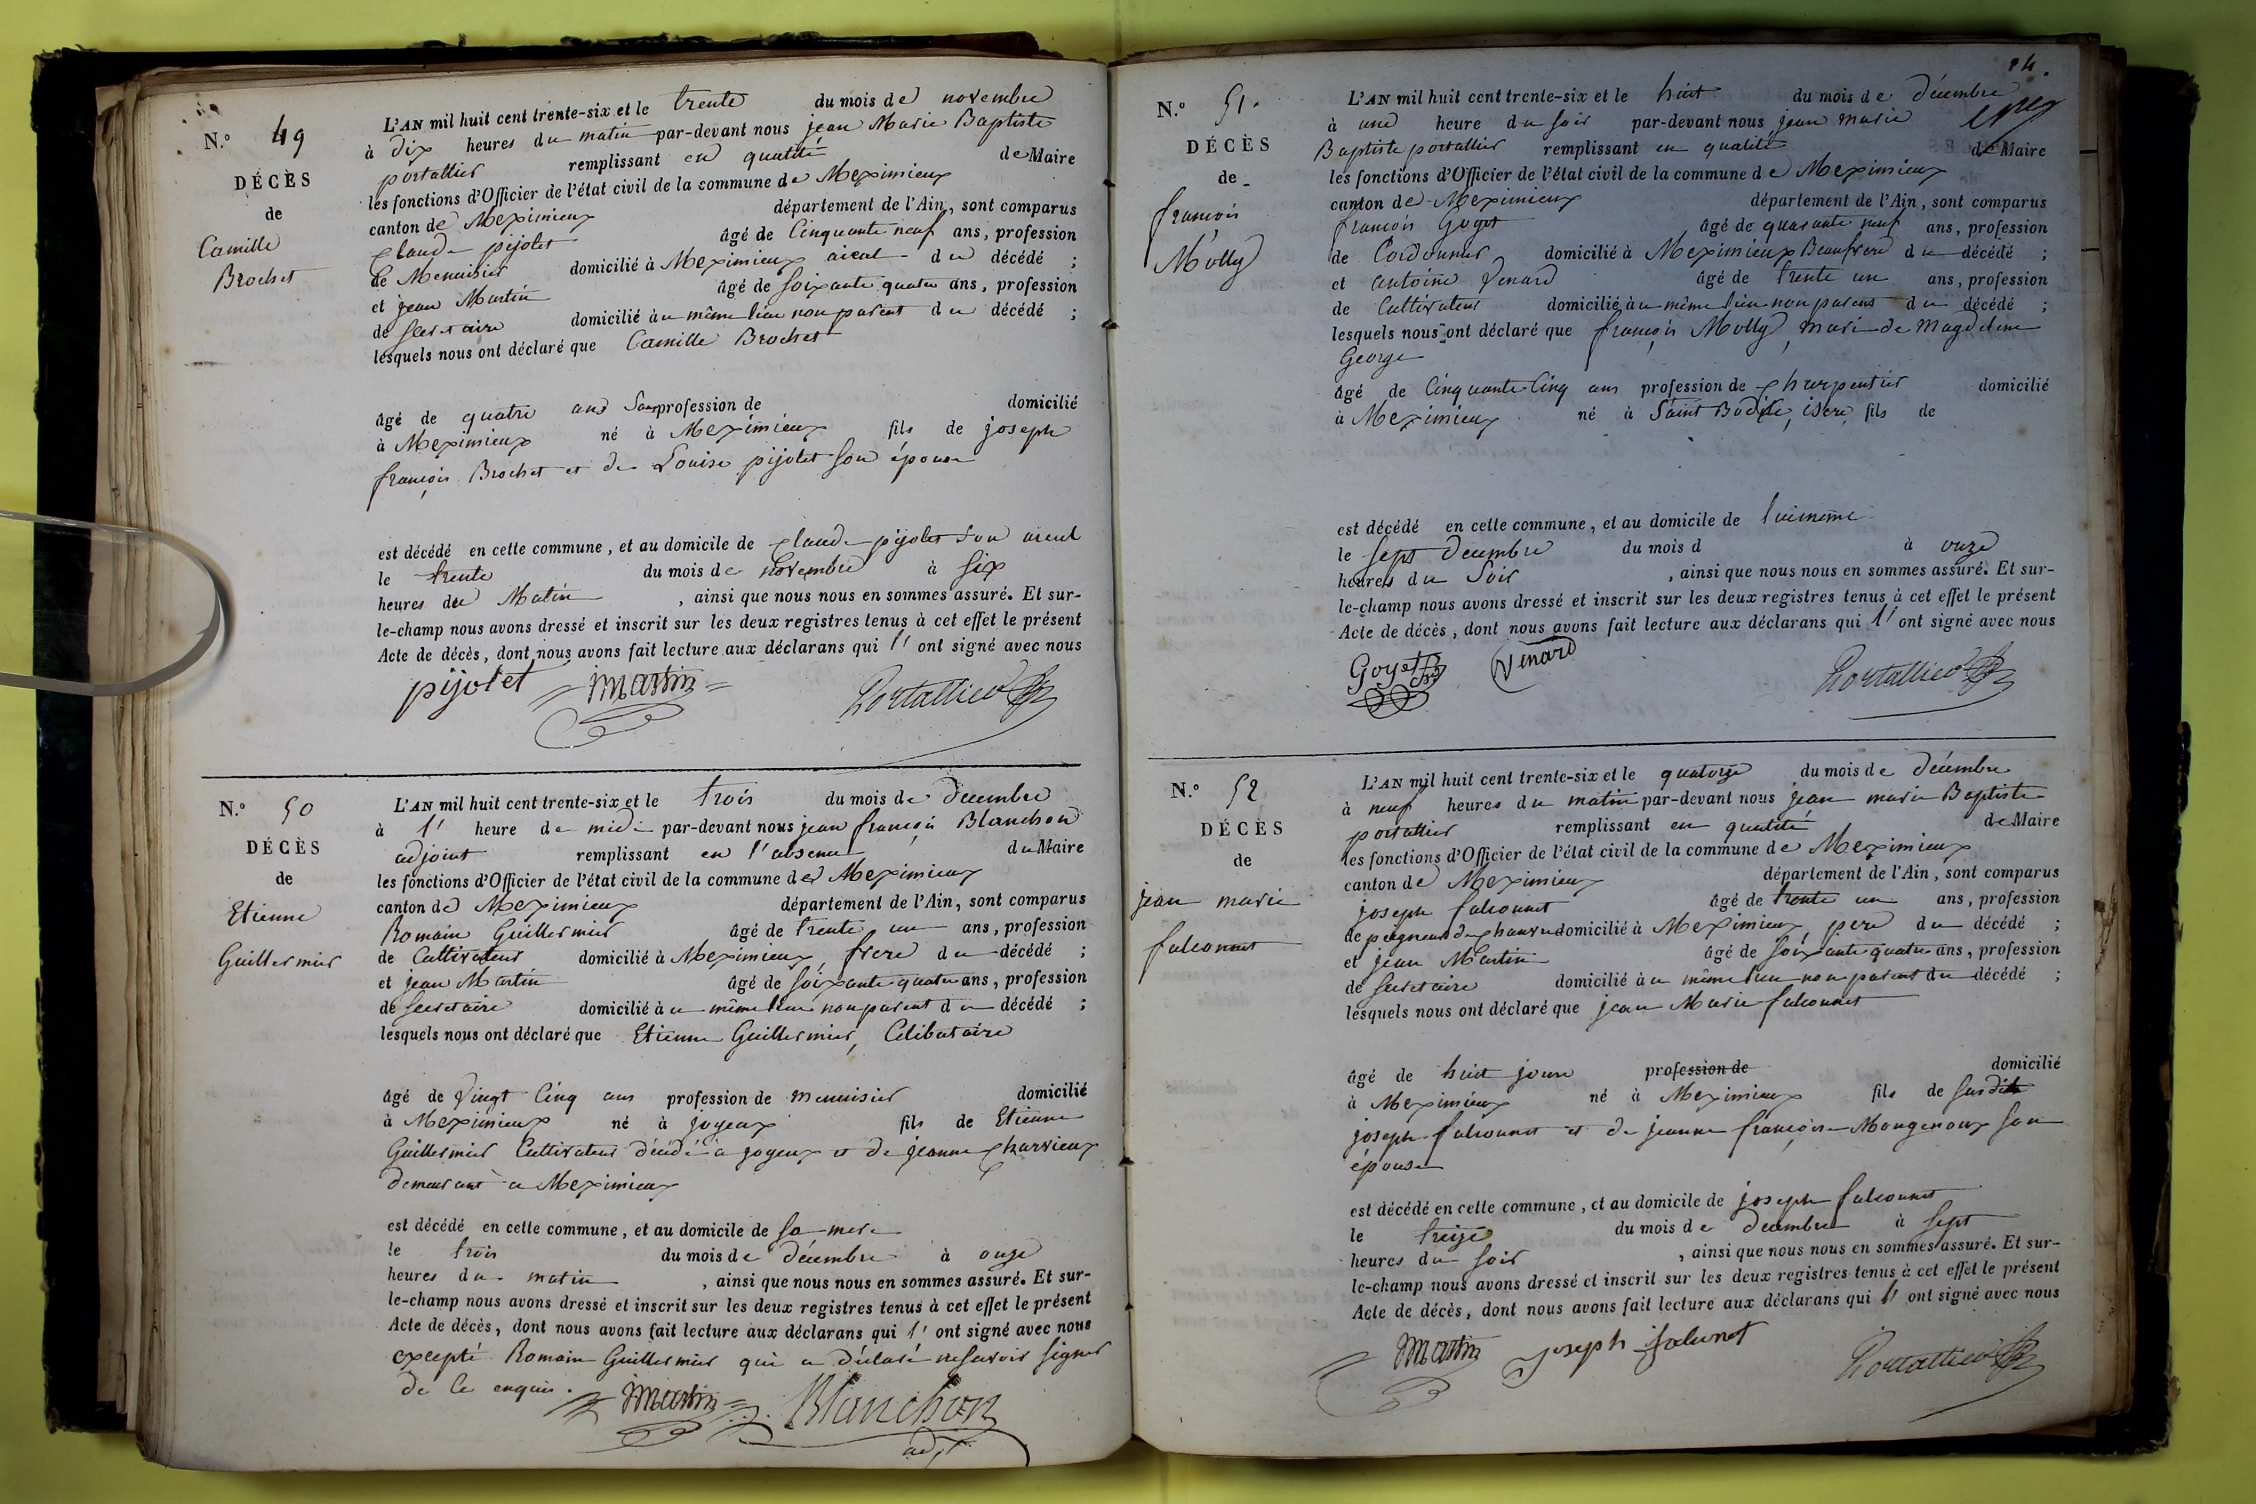 N.º 49
DÉCÈS
de
Camille
Brochet
L'AN mil huit cent trente-six et le trente du mois de novembre
à dix heures du matin par-devant nous jean Marie Baptiste
portallier remplissant en qualité de Maire
les fonctions d'Officier de l'état civil de la commune de Meximieux
canton de Meximieux département de l'Ain, sont comparus
Claude pijolet âgé de Cinquante neuf ans, profession
de Menuisier domicilié à Meximieux aieul du décédé ;
et jean Martin âgé de soixante quatre ans, profession
de secretaire domicilié àu même lieu non parent du décédé ;
lesquels nous ont déclaré que Camille Brochet
âgé de quatre ans Sans profession de domicilié
à Meximieux né à Meximieux fils de joseph
françois Brochet et de Louise pijolet son épouse
est décédé en cette commune, et au domicile de Claude pijolet son aieul
le trente du mois de novembre à six
heures du Matin , ainsi que nous nous en sommes assuré. Et sur-
le-champ nous avons dressé et inscrit sur les deux registres tenus à cet effet le présent
Acte de décès, dont nous avons fait lecture aux déclarans qui l' ont signé avec nous
pijolet jmartin Portallier
N.º 50
DÉCÈS
de
Etienne
Guillermier
L'AN mil huit cent trente-six et le trois du mois de décembre
à l' heure de midi par-devant nous jean françois Blanchon
adjoint remplissant en l'absence du Maire
les fonctions d'Officier de l'état civil de la commune de Meximieux
canton de Meximieux département de l'Ain, sont comparus
Romain Guillermier âgé de trente un ans, profession
de Cultivateur domicilié à Meximieux, frere du décédé ;
et jean Martin âgé de soixante quatre ans, profession
de secretaire domicilié àu même lieu non parent du décédé ;
lesquels nous ont déclaré que Etienne Guillermier, Celibataire
âgé de Vingt Cinq ans profession de menuisier domicilié
à Meximieux né à joyeux fils de Etienne
Guillermier Cultivateur décédé à joyeux et de jeanne Charvieux
demeurant a Meximieux
est décédé en cette commune, et au domicile de sa mere
le trois du mois de décembre à onze
heures du matin , ainsi que nous nous en sommes assuré. Et sur-
le-champ nous avons dressé et inscrit sur les deux registres tenus à cet effet le présent
Acte de décès, dont nous avons fait lecture aux déclarans qui l' ont signé avec nous
excepté Romain Guillermier qui a déclaré ne savoir signer
de ce enquis. jmartin Blanchon
adjt
14.
N.º 51.
DÉCÈS
de
françois
Molly
L'AN mil huit cent trente-six et le huit du mois de décembre
à une heure du soir par-devant nous jean marie
Baptiste portallier remplissant en qualité de Maire
les fonctions d'Officier de l'état civil de la commune de Meximieux
canton de Meximieux département de l'Ain, sont comparus
françois Goyet âgé de quarante neuf ans, profession
de Cordonnier domicilié à Meximieux Beaufrere du décédé ;
et antoine Venard âgé de trente un ans, profession
de Cultivateur domicilié àu même lieu non parent du décédé ;
lesquels nous ont déclaré que françois Molly, mari de Magdeleine
George
âgé de Cinquante Cinq ans profession de Charpentier domicilié
à Meximieux né à Saint Bodile, isere, fils de
est décédé en cette commune, et au domicile de luimême
le sept decembre du mois d à onze
heures du Soir , ainsi que nous nous en sommes assuré. Et sur-
le-champ nous avons dressé et inscrit sur les deux registres tenus à cet effet le présent
Acte de décès, dont nous avons fait lecture aux déclarans qui l' ont signé avec nous
Goyet Venard Portallier
N.º 52
DÉCÈS
de
jean marie
falconnet
L'AN mil huit cent trente-six et le quatorze du mois de décembre
à neuf heures du matin par-devant nous jean marie Baptiste
portallier remplissant en qualité de Maire
les fonctions d'Officier de l'état civil de la commune de Meximieux
canton de Meximieux département de l'Ain, sont comparus
joseph falconnet âgé de trente un ans, profession
de peigneur de Chanvre domicilié à Meximieux, pere du décédé ;
et jean Martin âgé de soixante quatre ans, profession
de secretaire domicilié àu même lieu non parent du décédé ;
lesquels nous ont déclaré que jean Marie falconnet
âgé de huit jours profession de domicilié
à Meximieux né à Meximieux fils de susdit
joseph falconnet et de jeanne françoise Mongenoux son
épouse
est décédé en cette commune, et au domicile de joseph falconnet
le treize du mois de decembre à sept
heures du soir , ainsi que nous nous en sommes assuré. Et sur-
le-champ nous avons dressé et inscrit sur les deux registres tenus à cet effet le présent
Acte de décès, dont nous avons fait lecture aux déclarans qui l' ont signé avec nous
jmartin joseph falconet Portallier